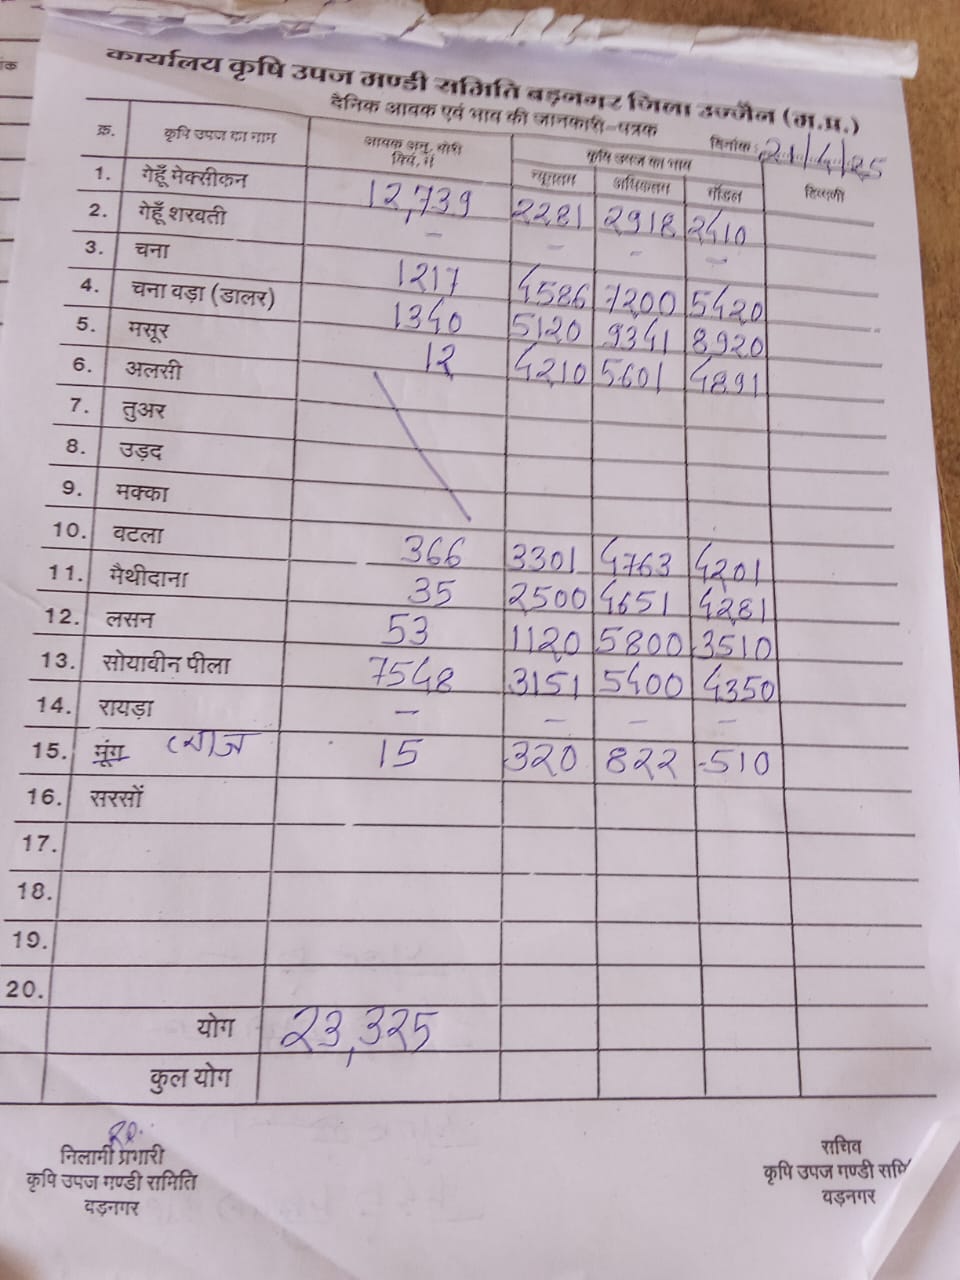 कार्यालय कृषि उपज मण्डी समिति बड़नगर जिला उज्जैन (म.प्र.)
दैनिक आवक एवं भाव की जानकारी-पत्रक
दिनांक : 21/4/25
क्र. कृषि उपज का नाम आवक अनु. बोरी क्विं. में कृषि उपज का भाव टिप्पणी
न्यूनतम अधिकतम मॉडल
1. गेहूँ मेक्सीकन 12,739 2281 2918 2410
2. गेहूँ शरवती - - - -
3. चना 1217 4586 7200 5420
4. चना वड़ा (डालर) 1340 5120 9341 8920
5. मसूर 12 4210 5601 4891
6. अलसी
7. तुअर
8. उड़द
9. मक्का
10. वटला 366 3301 4763 4201
11. मैथीदाना 35 2500 4651 4281
12. लसन 53 1120 5800 3510
13. सोयावीन पीला 7548 3151 5400 4350
14. रायड़ा - - - -
15. मूंग प्याज 15 320 822 510
16. सरसों
17.
18.
19.
20.
योग 23,325
कुल योग
निलामी प्रभारी
कृषि उपज मण्डी समिति
वड़नगर
सचिव
कृषि उपज मण्डी समि
वड़नगर